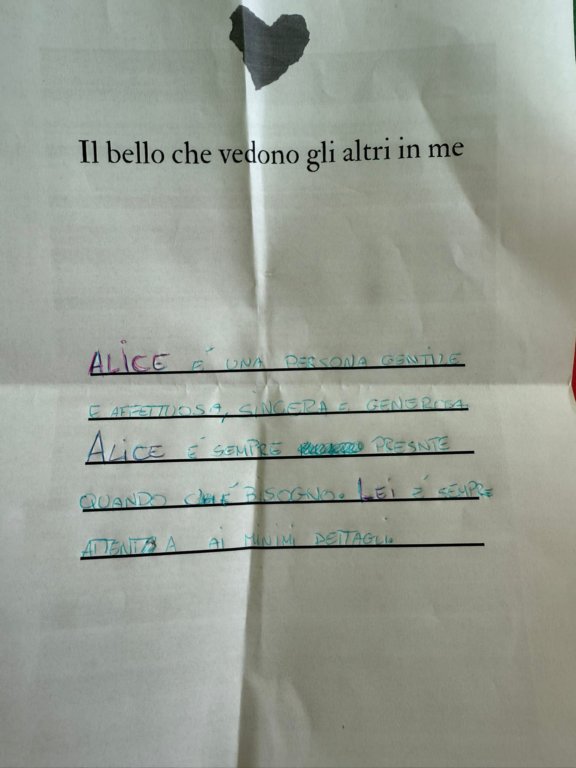 Il bello che vedono gli altri in me
ALICE E' UNA PERSONA GENTILE
E AFFETTUOSA, SINCERA E GENEROSA.
ALICE E' SEMPRE PRESNTE
QUANDO C'E' BISOGNO. LEI E' SEMPRE
ATTENTA AI MINIMI DETTAGLI.